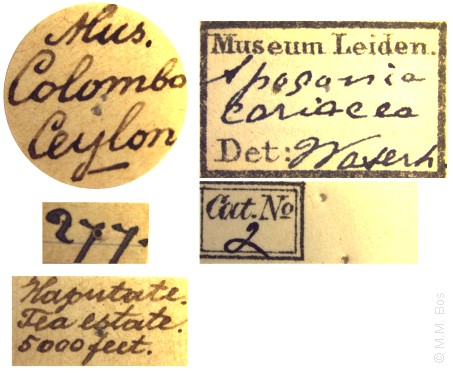 Mus.
Colombo
Ceylon
Museum Leiden.
Apogonia
coriacea
Det: Waterh.
277.
Cat. No
2
Haputale.
Tea estate.
5000 feet.
© M.M. Bos